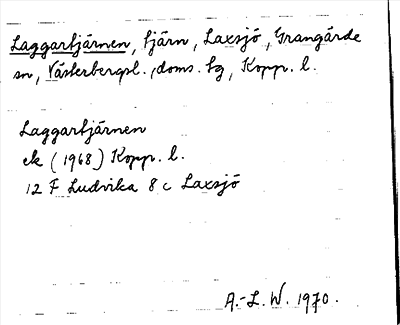 Laggartjärnen, tjärn, Laxsjö, Grangärde
sn, Västerbergsl. doms. tg, Kopp. l.
Laggartjärnen
ek (1968) Kopp. l.
12 F Ludvika 8 c Laxsjö
A.-L. W. 1970.